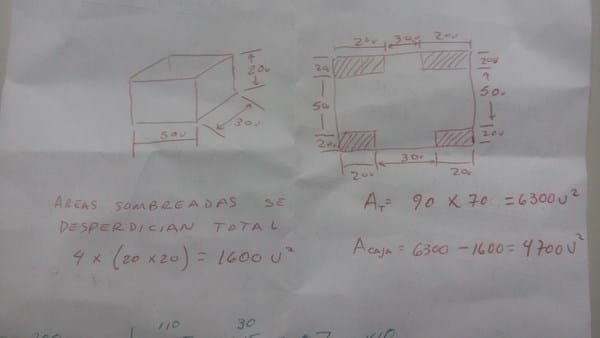 20u
50u
30u
20u 30u 20u
20 20u
50 50u
20u 20u
20u 30u 20u
AREAS SOMBREADAS SE
DESPERDICIAN TOTAL
4 × (20 × 20) = 1600 U²
A_T = 90 × 70 = 6300 U²
A_CAJA = 6300 − 1600 = 4700 U²
110 30